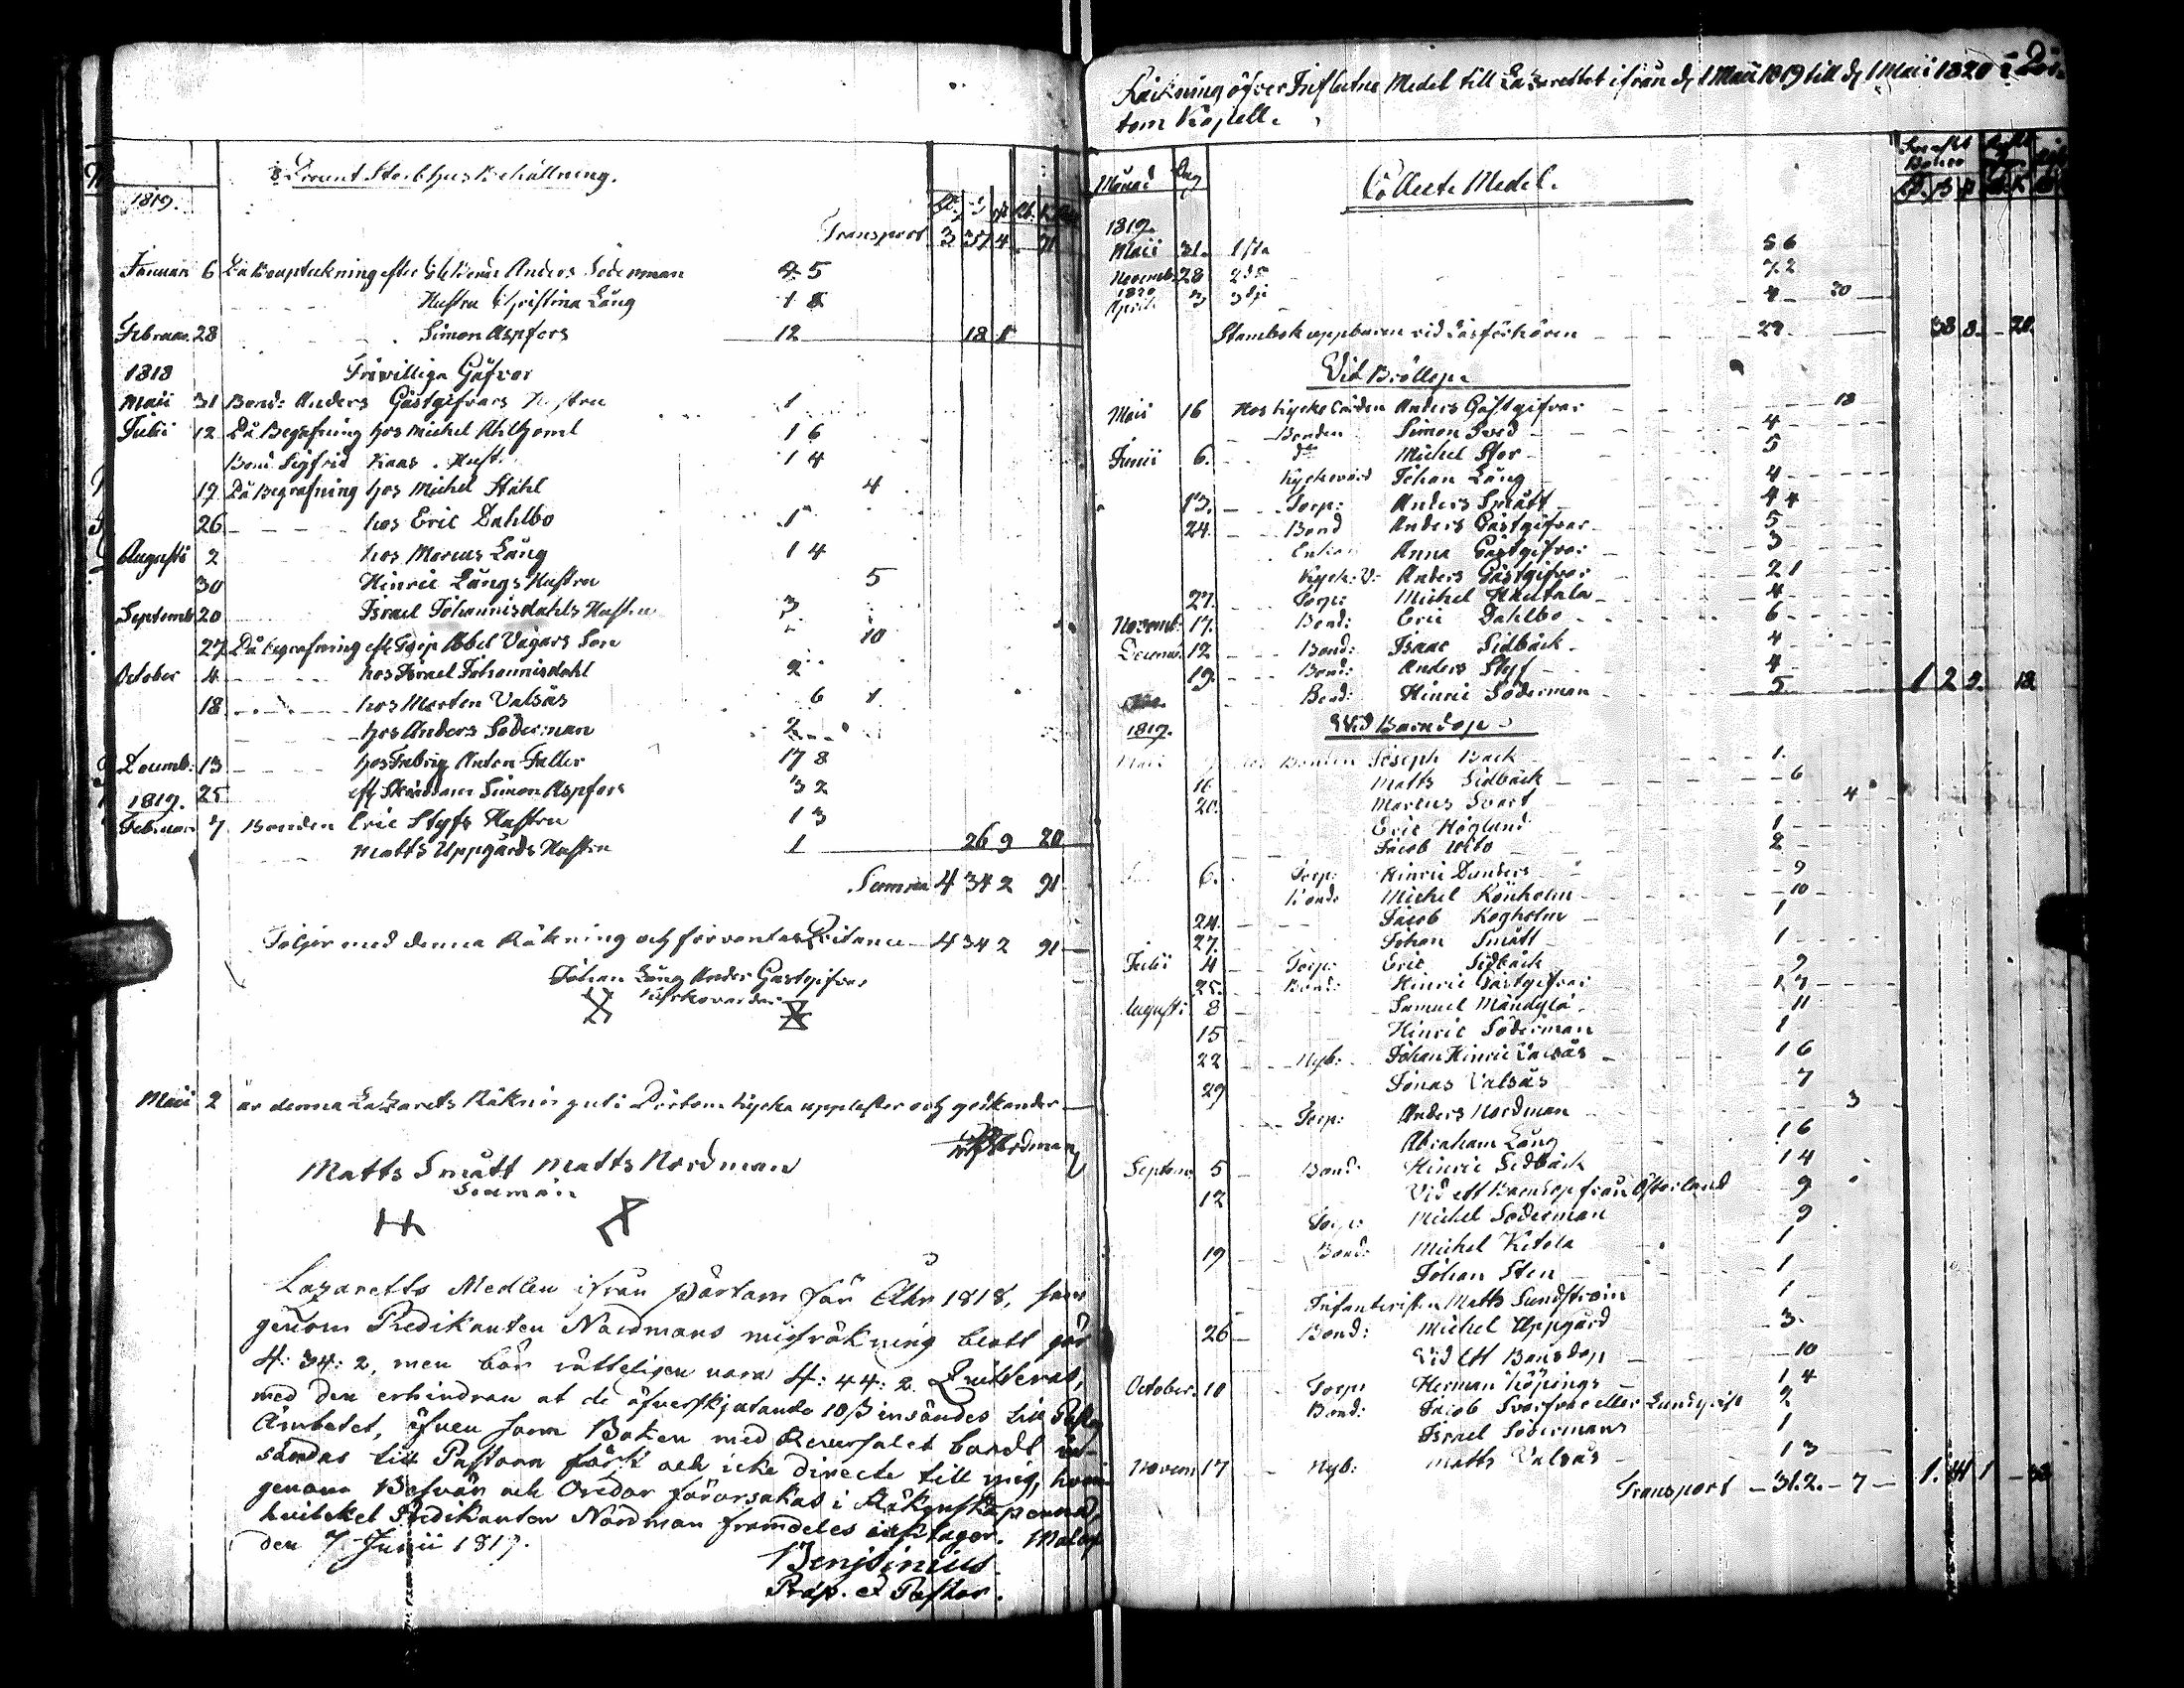 ⅛ Procent Sterbhus Behållning.
1819.
Rd. ß rst Rb. K
Transport 3 37 4 71
Januari 6 Bouptekning efter Anders Söderman 4 5
Hustru Christina Lång 1 8
Februari 28 Simon Aspfors 12 18 1
1818 Friwilliga Gåfvor
Maii 31 Bond: Anders Gästgifvars Hustru 1
Julii 12 På Begrafning hos Michel Ahlholml 1 6
Bond. Sigfrid Kaas. Hust. 1 4
17 På Begrafning hos Michel Ståhl 4
26 hos Eric Dahlbo 1
Augusti 2 hos Marcus Lång 1 4
30 Hinric Långs Hustru 5
Septemb 20 Israel Johannisdahls Hustru 3
27 På begrafning eft Torp Abbel Vägars Son 10
October 4 hos Israel Johannisdahl 2
18 hos Morten Valsås 6 1
hos Anders Söderman 2
Decemb: 13 hos Fabriq Anton Faller 17 8
25 eft Simon Aspfors 3 2
1819.
Februari 7 Bonden Eric Styfs Hustru 1 3
Matts Uppgårds Hustru 1 26 9 20
Summa 4 34 2 91
Följer med denna Räkning och förvantas Qvitance 4 34 2 91
Johan Lång Anders Gästgifvar
Kyrkovärdar
Maii 2 är denna Lazarets Räkning uti Pörtom Kyrka uppläsen och godkänder
Nordman
Matts Smått Matts Nordman
Sexmän
Lazaretts Medlen ifrån Pörtom för Åhr 1818, som
genom Predikanten Nordmans misräkning blott gör
4: 34: 2, men bör rätteligen vara 4: 44: 2. Quitteras,
med den erhindran at de öfverskjutande 10 ß insändes till Pastors
Ämbetet, äfven som Boken med Reversalet bordt in-
sändas till Pastorn först och icke directe till mig,
genom Besvär och Oredor förorsakas i
hvilcket Predikanten Nordman framdeles
den 7 Junii 1819.
Benj Sinius
Præp. et Pastor.
Räkning öfver Influtne Medel till Lazarettet ifrån d. 1 Maii 1819 till d. 1 Maii 1820 i Pör-
tom Kapell.
Månad Dag Collecte Medel.
1819.
Maii 31. 1sta 56
Novemb. 28 2dra 72
1820
April 3 3dje 4 20
Stambok uppburen vid Läsförhören 29 38 8 20
Vid Bröllop
Maii 16 Hos Kyrkovärden Anders Gästgifvar 18
Bonden Simon Sved 4
Junii 6. do Michel Stor 5
Kyrkovärd Johan Lång 4
13. Torp: Anders Smått 4 4
24. Bond Anders Gästgifvar 5
Enkan Anna Gästgifvar 3
Kyrk: V: Anders Gästgifvar 21
27. Torp: Michel Hautala 4
Novemb: 17. Bond: Eric Dahlbo 6
Decemb. 12 Bond: Isaac Sidbäck 4
19. Bond: Anders Styf 4
Bond: Hinric Söderman 5 1 2 9. 18
1819. Vid Barndop
Maii Bonden Joseph Back 1.
16 Matts Sidbäck 6
20. Marcus Svart 4
Eric Höglund 1
Jacob 2
6. Torp: Hinric Dunders 9
Bond: Michel Rönholm 10
24. Jacob Rogholm 1
27. Johan Smått 1
Julii 4 Torp: Eric Sidbäck 9
25. Bond: Hinric Gästgifvar 1 7
Augusti 8 Samuel Mändylä 11
15 Hinric Söderman 1
22 Nyb: Johan Hinric Valsås 1 6
29 Jonas Valsås 7
Torp: Anders Nordman 3
Abraham Lång 1 6
Septem 5 Bond: Hinric Sidbäck 1 4
12 Vid ett Barndop från Österland 9
Torp: Michel Söderman 9
19 Bond: Michel Ketola 1
Johan Sten 1
Infanteristen Matts Sundström 1
26 Bond: Michel Uppgård 3.
Vid Ett Barndop 10
October. 10 Torp: Herman Köpings 1 4
Bond: Jacob Svarfvar eller Lundqvist 2
Israel Södermans 1
Novem 17 Nyb: Matts Valsås 1 3
Transport 31. 2. 7 1. 41 1 38